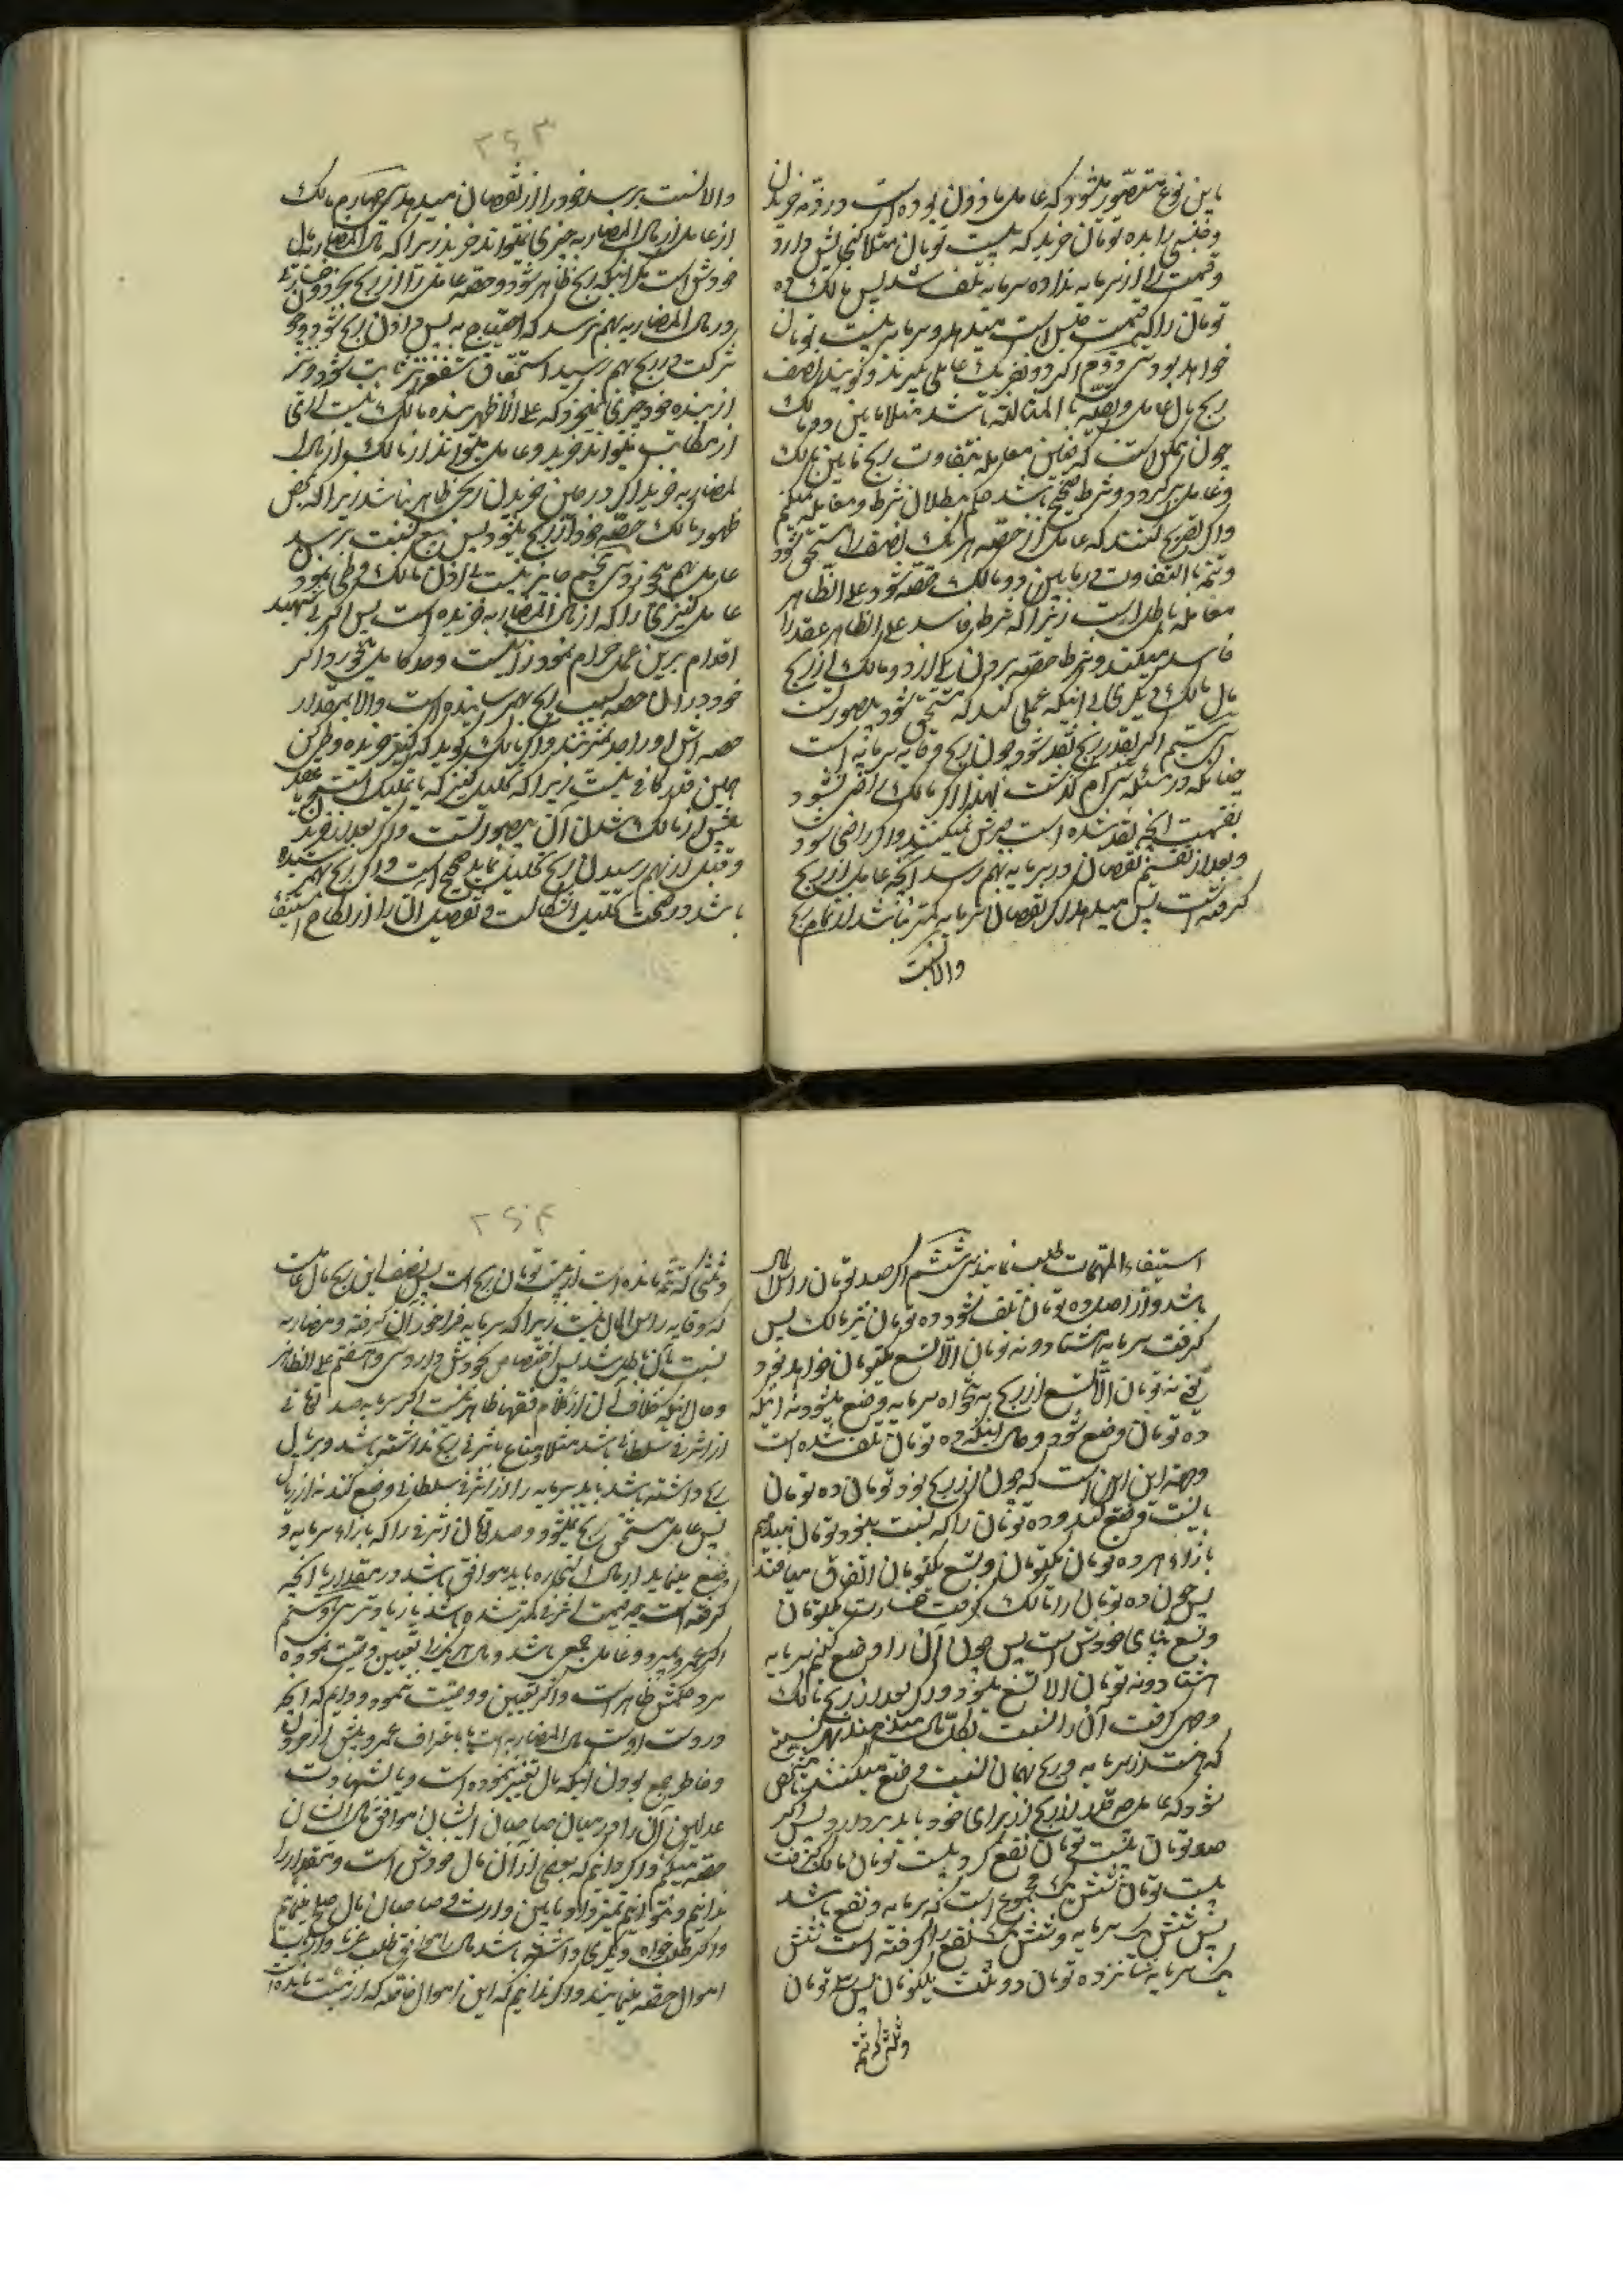 باین نوع متصور میشود که عامل ماذون بوده است در ذمه خریدن
و جنسی را بده تومان خرید که بیست تومان مثلا گنجایش دارد
و قیمت را از سرمایه نداده سرمایه تلف شد پس مالک ده
تومان را که قیمت جنس است میدهد و سرمایه بیست تومان
خواهد بود سی و دوم اگر دو نفر یک عاملی بگیرند و گویند نصف
ربح مال عامل و بقیه بالمثالثه باشد مثلا مابین دو مالک
چون ممکن است که معامله بتفاوت ربح مابین مالک
و عامل برگردد و شرط صحیح باشد حکم ببطلان شرط و معامله نمیکنیم
و اگر تصریح کنند که عامل از حصه هر یک نصف را مستحق شود
و تتمه بالتفاوت در مابین دو مالک حصه شود علی الظاهر
معامله باطل است زیرا که شرط فاسد علی الظاهر عقد را
فاسد میکند و شرط حصه بردن یکی از دو مالک از ربح
مال مالک دیگری بی اینکه عملی کند که مستحق شود بیصورتست
سی سیم اگر بقدر ربح نقد شود چون ربح وقایه سرمایه است
چنانکه در مسئله سی ام گذشت لهذا اگر مالک راضی نشود
بقسمت آنچه نقد شده است جبرش نمیکنند و اگر راضی شود
و بعد از تقسیم نقصان در سرمایه بهم رسد آنچه عامل از ربح
گرفته است پس میدهد اگر نقصان سرمایه کمتر نباشد از تمام ربح
والا نسبت
۲۶۳
والا نسبت برسد خود را از نقصان میدهد سی چهارم مالک
از عامل از مال المضاربه چیزی نمیتواند خرید زیرا که مال المضاربه مال
خودش است مگر اینکه ربح ظاهر شود و حصه عامل را از ربح بخرد
در مال المضاربه بهم نرسد که احتیاج به پس دادن ربح شود و چون
شرکت در ربح بهم رسید استحقاق شفعه نیز ثابت شود و نیز
از بنده خود چیزی نمیخرد که علی الاظهر بنده مالک نیست بلی
از مکاتب میتواند خرید و عامل میتواند از مالک و از مال
المضاربه خرید اگر در حین خریدن ربحی ظاهر نباشد زیرا که بمحض
ظهور مالک حصه خود از ربح میشود پس بیع نسبت برسد
عامل بهم نمیخورد سی پنجم جایز نیست بی اذن مالک وطی نمودن
عامل کنیزی را که از مال المضاربه خریده است پس اگر بی تمهید
اقدام برین عمل حرام نمود زانیست و حد کامل میخورد اگر
خود در آن حصه بسبب ربح بهم نرسانیده است والا بمقدار
حصه اش او را حد نمیزنند و اگر مالک گوید که کنیز خریده وطی کن
همین قدر کافی نیست زیرا که تحلیل کنیز که یا تملیک است یا عقد
پیش از مالک شدن آن بیصورتست و اگر بعد از خرید
و قبل از بهم رسیدن ربح تحلیل نماید صحیح است و اگر ربح بهم رسیده
باشد در صحت تحلیل اشکالست و تفصیل آن را از نکاح استیفاء
استیفاء المتهمات طلب نمایند سی ششم اگر صد تومان راس المال
باشد و از صد ده تومان تلف شود و ده تومان نیز مالک پس
گرفت سرمایه هشتاد و نه تومان الا تسع یکتومان خواهد بود
یعنی نه تومان الا تسع از ربح بتنخواه سرمایه وضع میشود نه اینکه
ده تومان وضع شود و حال آنکه ده تومان تلف شده است
وجه این این است که چون از ربح نود تومان ده تومان
بایست وضع کند و ده تومان را که نسبت بنود تومان میدهیم
بازاء هر ده تومان یکتومان و تسع یکتومان اتفاق میافتد
پس چون ده تومان را مالک گرفت خسارت یکتومان
و تسع بپای خودش است پس چون آن را وضع کنیم سرمایه
هشتاد و نه تومان الا تسع میشود و اگر بعد از ربح مالک
وجهی گرفت آن را نسبت بکل مال میدهند بهر نسبتی
که هست از سرمایه و ربح بهمان نسبت وضع میکنند تا مشخص
شود که عامل چه قدر از ربح از برای خود باید بردارد پس اگر
صد تومان بیست تومان نفع کرد و بیست تومان مالک گرفت
بیست تومان شش یک مجموع است که سرمایه و نفع باشد
پس شش یک سرمایه و شش یک نفع را گرفته است شش
یک سرمایه شانزده تومان دو ثلث یکتومان پس سه تومان
و ثلثی که تتمه
۲۶۴
و ثلثی که تتمه مانده است از بیست تومان ربح است پس نصف این ربح مال عاملست
که وقایه راس المال نیست زیرا که سرمایه فراخور آن گرفته و مضاربه
نسبت بآن باطل شد پس اختصاص بخودش دارد سی و هفتم علی الظاهر
و حال اینکه خلاف آن از کلام فقها ظاهر نیست اگر سرمایه صد تومان
از اشرفی سلطانی باشد مثلا و متاع باشرفی ربح نداشته باشد و بریال
ربح داشته باشد باید سرمایه را از اشرفی سلطانی وضع کند نه از ریال
پس عامل مستحق ربح نمیشود و صد تومان اشرفی را که بازاء سرمایه و
وضع مینماید از مال التجاره باید موافق باشد در مقدار با آنچه
گرفته است چه قیمت اشرفی کمتر شده باشد یا زیادتر سی و هشتم
اگر عمرو بمیرد و عامل جمعی باشد و مال هر یک را تعیین و وصیت نموده
مرد حکمش ظاهر است و اگر تعیین و وصیت ننمود و دانیم که آنچه
در دست اوست مال المضاربه است یا باعتراف عمرو پیش از مردن
و خاطر جمع بودن اینکه مال تغییر ننموده است و یا بشهادت
عدلین آن را در میان صاحبان ایشان موافق مال ایشان
حصه میکنیم و اگر دانیم که بعضی از آن مال خودش است و مقدار را
ندانیم و نتوانیم تمیز داد مابین وارث و صاحبان مال صلح مینماییم
و اگر طلبخواه دیگری داشته باشد مال را موافق طلب غرما و ارباب
اموال حصه مینمایند و اگر ندانیم که این اموال خاصه که از میت مانده است